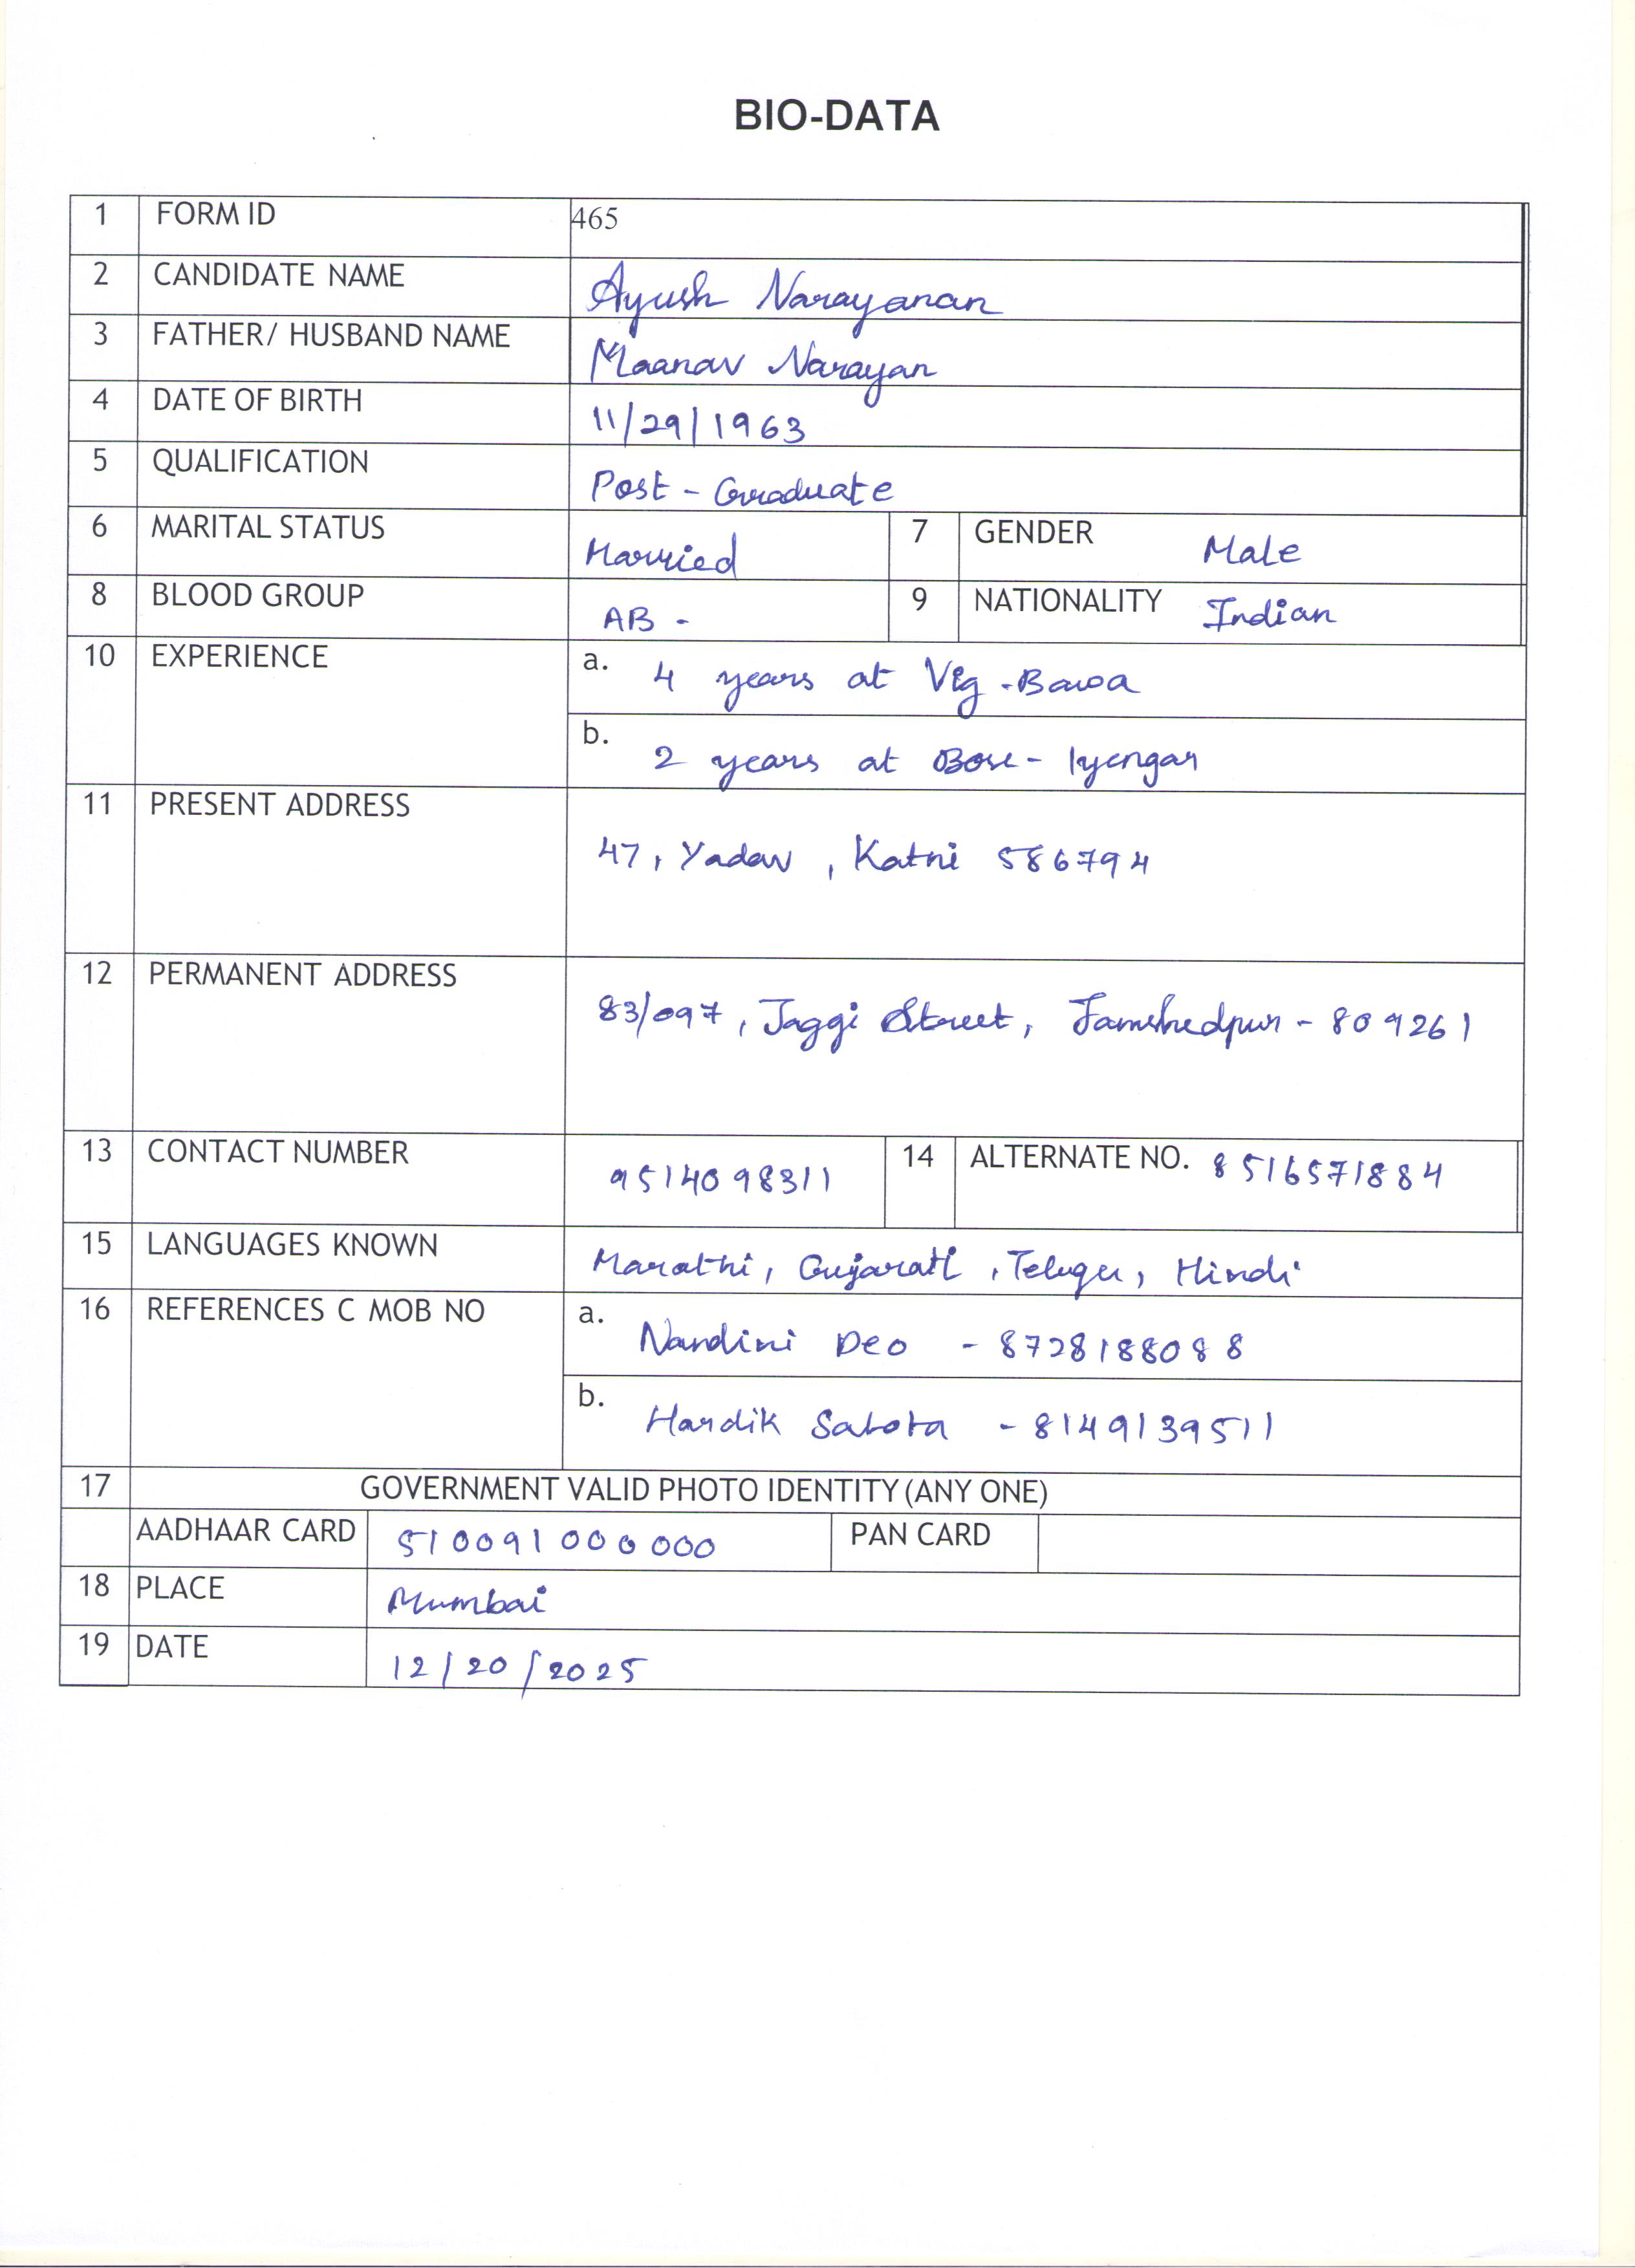 BIO-DATA
1 FORM ID 465
2 CANDIDATE NAME Ayush Narayanan
3 FATHER/ HUSBAND NAME Maanav Narayan
4 DATE OF BIRTH 11/29/1963
5 QUALIFICATION Post - Graduate
6 MARITAL STATUS Married 7 GENDER Male
8 BLOOD GROUP AB - 9 NATIONALITY Indian
10 EXPERIENCE a. 4 years at Vig - Bawa
b. 2 years at Bose - Iyengar
11 PRESENT ADDRESS
47, Yadav , Katni 586794
12 PERMANENT ADDRESS
83/097, Jaggi Street, Jamshedpur - 809261
13 CONTACT NUMBER 9514098311 14 ALTERNATE NO. 8516571884
15 LANGUAGES KNOWN Marathi, Gujarati, Telugu, Hindi
16 REFERENCES C MOB NO a. Nandini Deo - 8728188088
b. Hardik Sabota - 8149139511
17 GOVERNMENT VALID PHOTO IDENTITY (ANY ONE)
AADHAAR CARD 510091000000 PAN CARD
18 PLACE Mumbai
19 DATE 12/20/2025